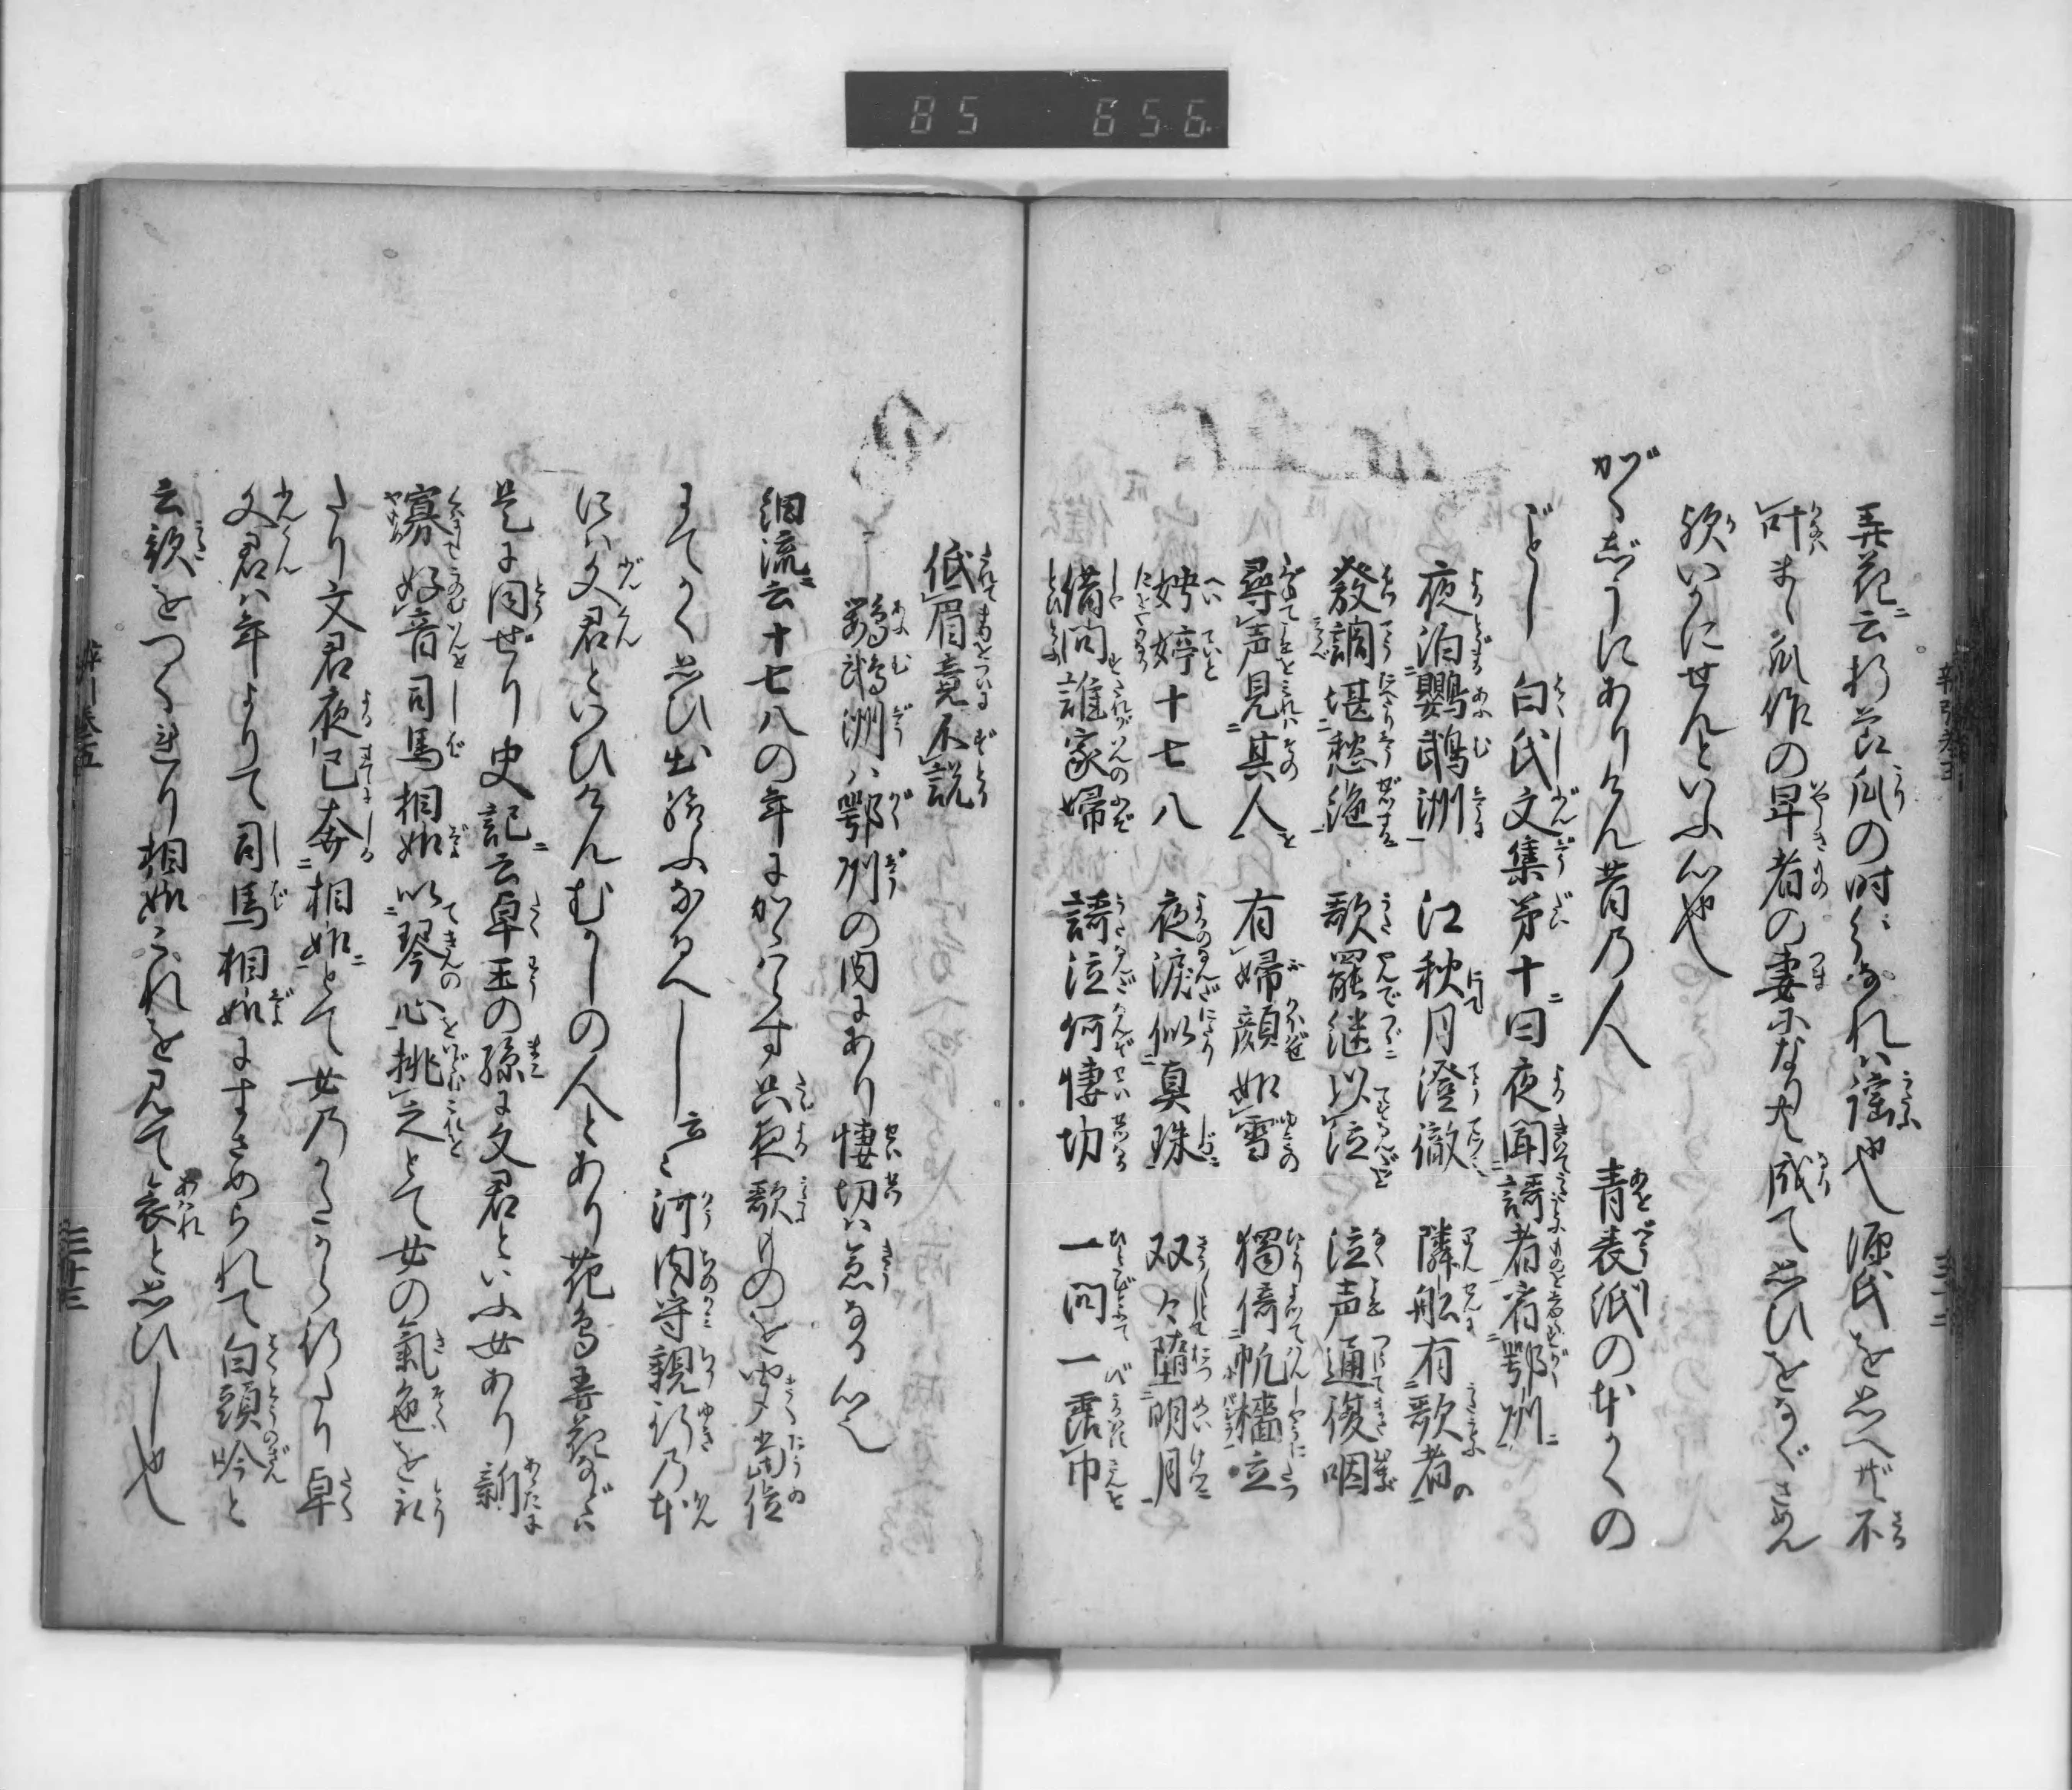 85 656
弄花ニ云折節瓜の時分なれハ謡也源氏を思へど不
叶ま〻瓜作の卑者の妻になりや成て思ひをなぐさめん
欤いかにせんといふ心也
がくしうにありけん昔乃人 青表紙の本かくの
ごとし 白氏文集第十ニ曰夜聞謌者宿鄂州
夜泊鸚鵡洲 江秋月澄徹 隣舩有歌者
發調堪愁絶 歌罷継以泣 泣声通復咽
尋声見其人 有婦顔如雪 獨倚帆檣立
娉婷十七八 夜涙似真珠 双々墮明月
借問誰家婦 謌泣何悽切 一問一霑巾
低眉竟不説
鸚鵡洲ハ鄂州の内にあり悽切ハ急なる心也
細流ニ云十七八の年にかゝハらす只夜歌ものを聞尚侍
にてかく思ひ出給ふなるへし 云々河内守親行乃本
にハ文君といひけんむかしの人とあり花鳥弄花などハ
是に同ぜり史記ニ云卓王の孫に文君といふ女あり新
寡好音司馬相如以琴心挑之とて女の氣色を和
たり文君夜已奔相如とて女乃かたから行たり卓
文君ハ年よりて司馬相如にすさめられて白頭吟と
云歌をつくれり相如これを見て哀と思ひし也
三十三